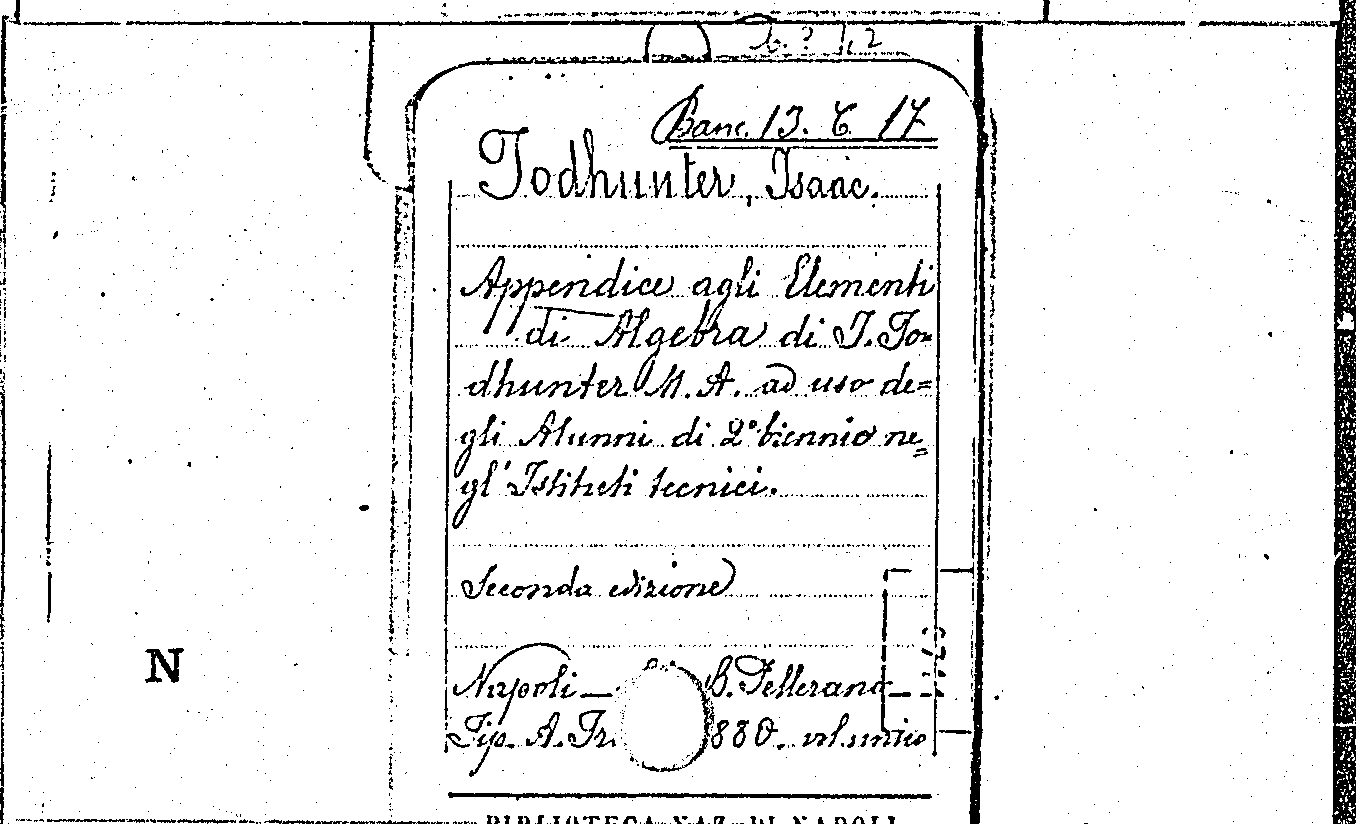 Banc. 13. C 17
Todhunter, Isaac.
Appendice agli Elementi
di Algebra di I. To=
dhunter M. A. ad uso de=
gli Alunni di 2° biennio ne=
gl' Istituti tecnici.
Seconda edizione
Napoli — B. Pellerano
Tip. A. Tr. 880. vol. unico
N
BIBLIOTECA NAZ. DI NAPOLI